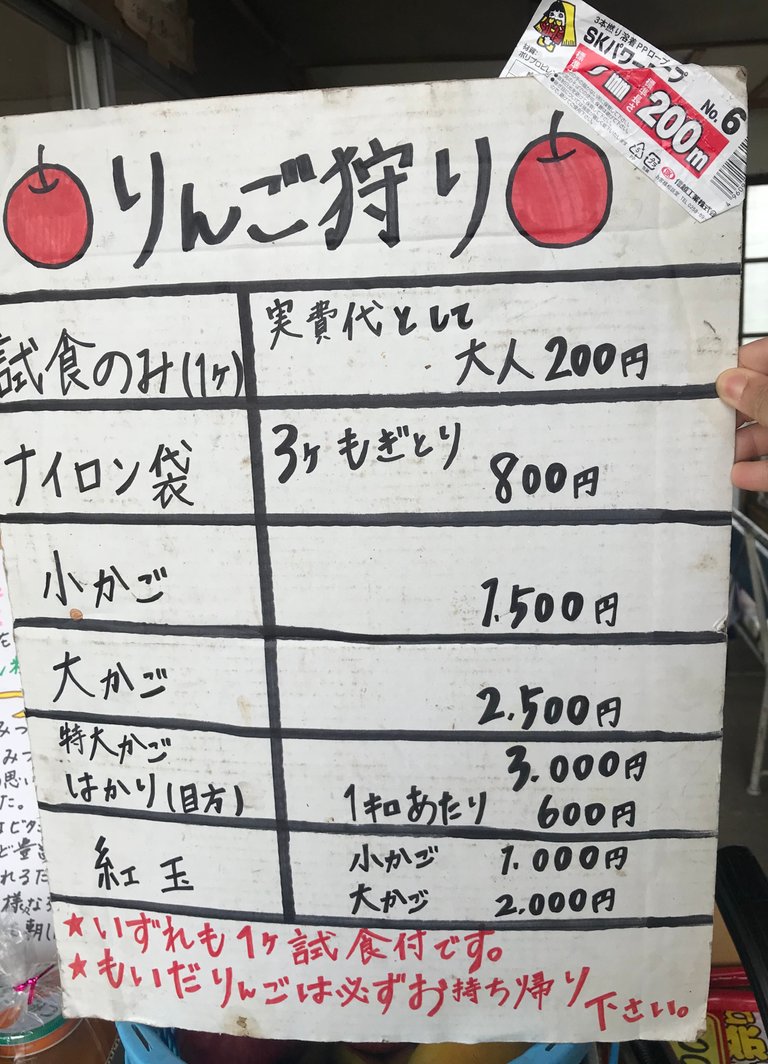 3本撚り溶着PPロープ
SKパワーロープ
No.6
200m
りんご狩り
試食のみ(1ヶ) 実費代として
大人 200円
ナイロン袋 3ヶもぎとり 800円
小かご 1.500円
大かご 2.500円
特大かご 3.000円
はかり(目方) 1キロあたり 600円
紅玉 小かご 1.000円
大かご 2.000円
★いずれも1ヶ試食付です。
★もいだりんごは必ずお持ち帰り下さい。